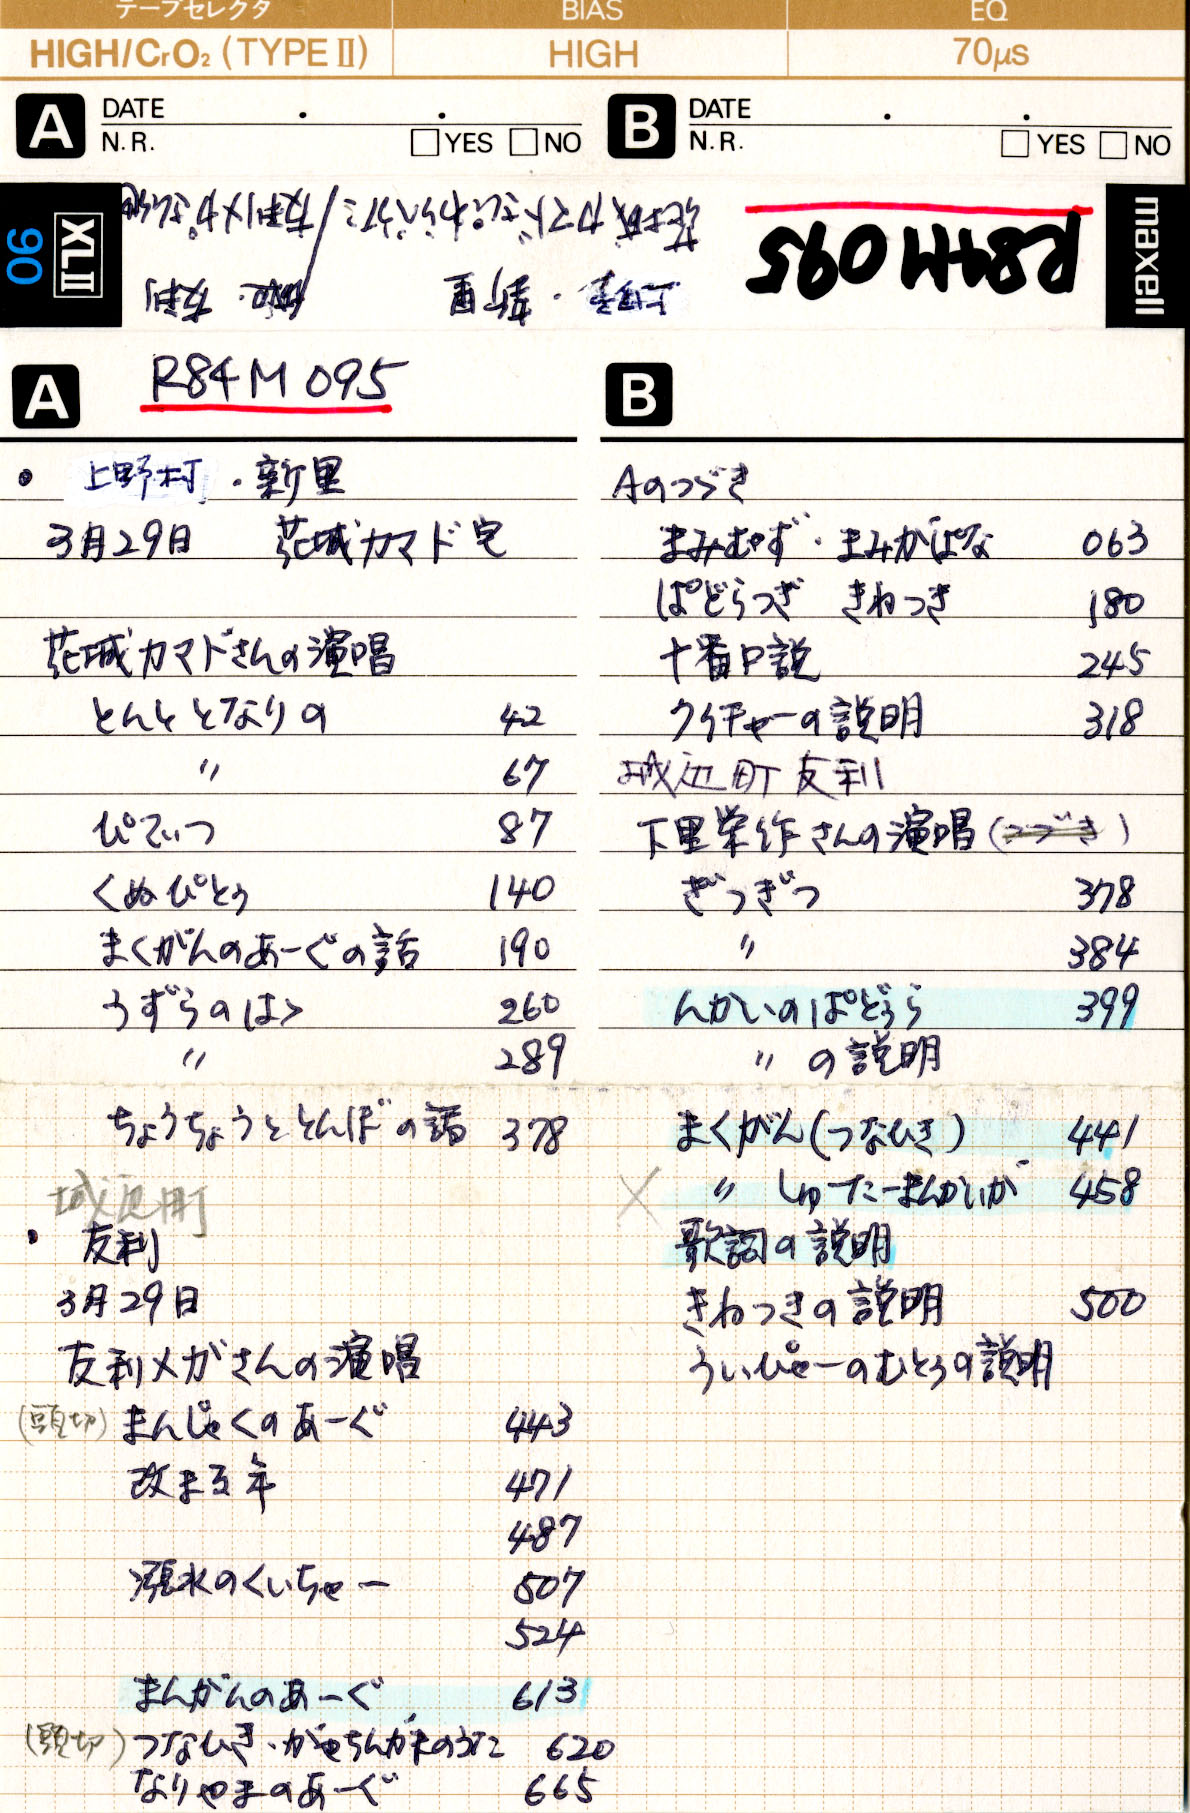 テープセレクタ BIAS EQ
HIGH/CrO₂ (TYPE II) HIGH 70μs
A DATE . .
N.R. □YES □NO
B DATE . .
N.R. □YES □NO
XLII 90
maxell
R84M095
花城カマドさん わらべうた / 友利メガさん
上野・新里 城辺・友利
A R84M095
・上野村・新里
3月29日 花城カマド宅
花城カマドさんの演唱
とんととなりの 42
〃 67
ぴてぃつ 87
くぬぴとぅ 140
まくがんのあーぐの話 190
うずらのはゝ 260
〃 289
ちょうちょうととんぼの話 378
城辺町
・友利
3月29日
友利メガさんの演唱
(頭切) まんじゃくのあーぐ 443
改まる年 471
487
漲水のくいちゃー 507
524
まんがんのあーぐ 613
(頭切) つなひき・がーちんがまのうた 620
なりやまのあーぐ 665
B
Aのつづき
まみむず・まみがぱな 063
ぱどらつぎ きねつき 180
十番口説 245
クイチャーの説明 318
城辺町友利
下里栄作さんの演唱(つづき)
ぎつぎつ 378
〃 384
んかいのぱどぅら 399
〃 の説明
まくがん(つなひき) 441
× 〃 しゅーたーまんかいが 458
歌詞の説明
きねつきの説明 500
ういぴゃーのむとぅの説明